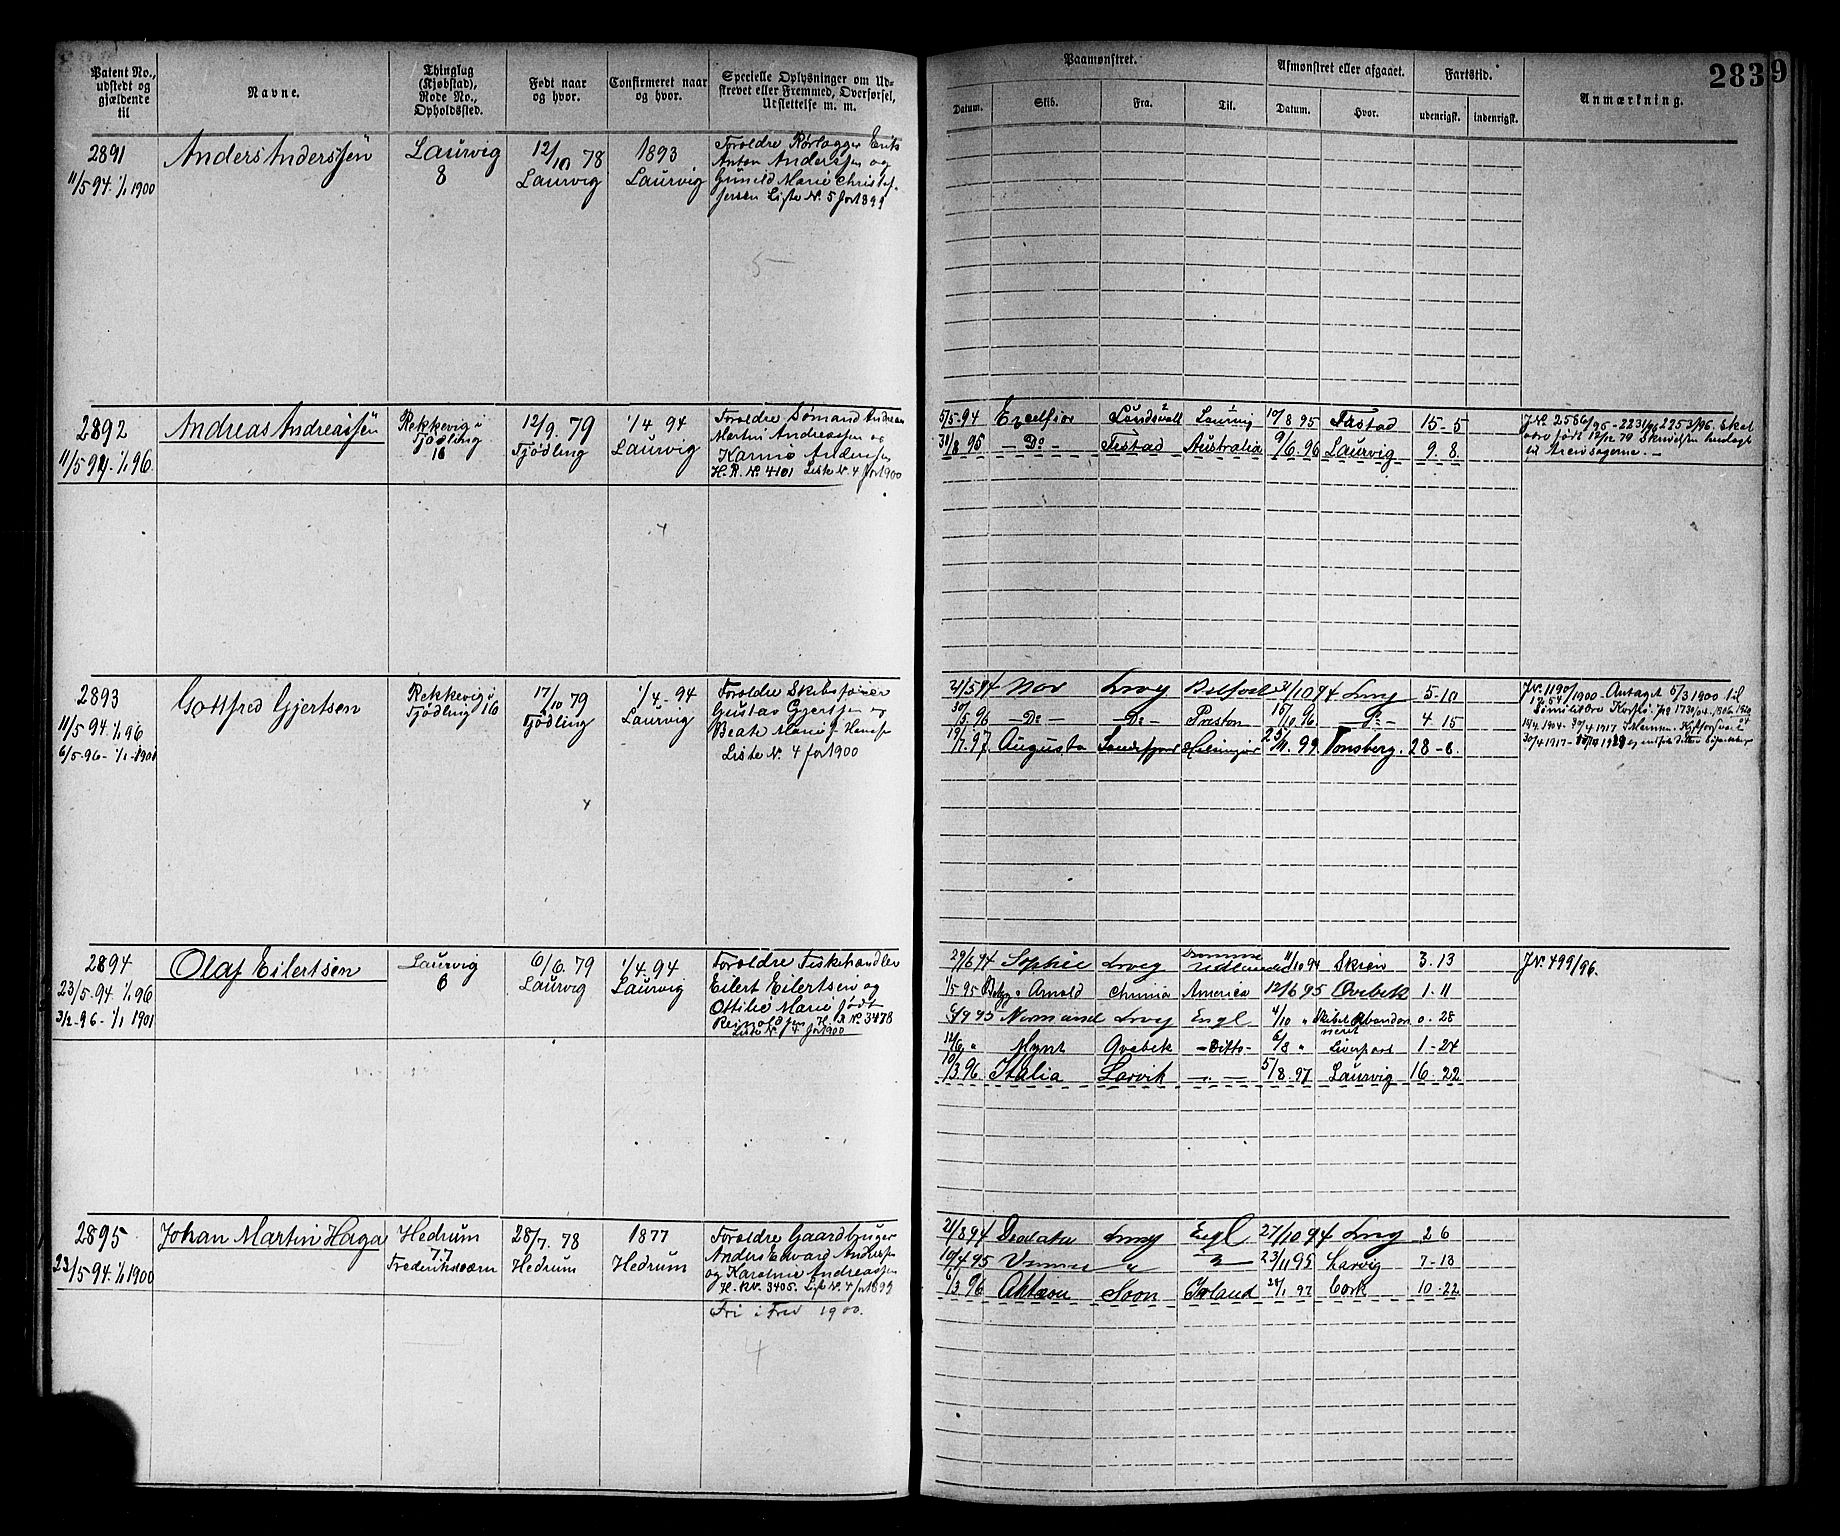 Patent No., udstedt og gjældende til
Navne.
Thinglag (Kjøbstad), Rode No., Opholdssted.
Født naar og hvor.
Confirmeret naar og hvor.
Specielle Oplysninger om Udskrevet eller Fremmed, Overførsel, Udslettelse m. m.
Paamønstret.
Datum.
Skib.
Fra.
Til.
Afmønstret eller afgaaet.
Datum.
Hvor.
Fartstid.
udenrigsk.
indenrigsk.
Anmærkning.
283
9
2891
11/5 94. 1/1 1900
Anders Anderssen
Laurvig
8
12/10 78
Laurvig
1893
Laurvig
Forældre Rørlægger
Anton Anderssen og
Marie
Liste No. 5 for 1899
5
2892
11/5 94. 1/1 96.
Andreas Andreassen
Rekkevig i
Tjødling
16
12/9. 79
Tjødling
1/4 94
Laurvig
Forældre Sømand Andreas
Martin Andreassen og
H. R. No. 4101 Liste No. 4 for 1900
4
5/5 94 Excelsior Laurvig 10/8 95 15-5
31/8 95 Do Australia 9/6. 96 Laurvig 9. 8.
født 12/12 79
2893
11/5 94. 1/1 96
6/5 96 - 1/1 1901
Gottfred Gjertsen
Rekkevig i
Tjødling 16
17/10 79
Tjødling
1/4 - 94
Laurvig
Forældre Skibsfører
Gustav Gjertsen og
Beate Marie
Liste No. 4 for 1900
4
21/5 94 Nor Lrvg 94 Lrvg 5-10
30/5 96 Do Do Preston 15/10 96 Do 4. 15
19/7. 97 Augusta 99 Tønsberg. 28-6.
JN. 1190/1900 - Antaget 5/3 1900 til
2894
23/5. 94 1/1 96
3/2. 96 - 1/1 1901
Olaf Eilertsen
Laurvig
6
6/6. 79
Laurvig
1/4. 94
Laurvig
Forældre Fiskehandler
Eilert Eilertsen og
Marie født
H. R. No. 3478
Liste No. 4 for 1900
29/6 94 Sophie Lrvg 11/10 94 Skien 3. 13
1/5 95 Arnold America 12/6 95 Qvebek 1. 11
95 Normand Lrvg Engl 4/10 " 0. 28
12/6 " Mynt Qvebek Ditto 6/8 " Liverpool 1 - 24
10/3. 96 Italia Larvik 5/8. 97 Laurvig 16. 22
JN. 499/96.
2895
23/5 94. 1/1 1900
Johan Martin Haga
Hedrum
77
Frederiksværn
28/7. 78
Hedrum
1877
Hedrum
Forældre Gaardbruger
Anders Edvard
og Karoline Andreassen
H. R. No. 3405. Liste No. 4 for 1899
Fri i Fred 1900.
4
21/8 94 Lrvg Engl 27/10 94 Lrvg 2 6
10/4 95 " 23/11 95 Larvig 7-13
6/3 96 Soon Irland 28/1 97 Cork 10. 22